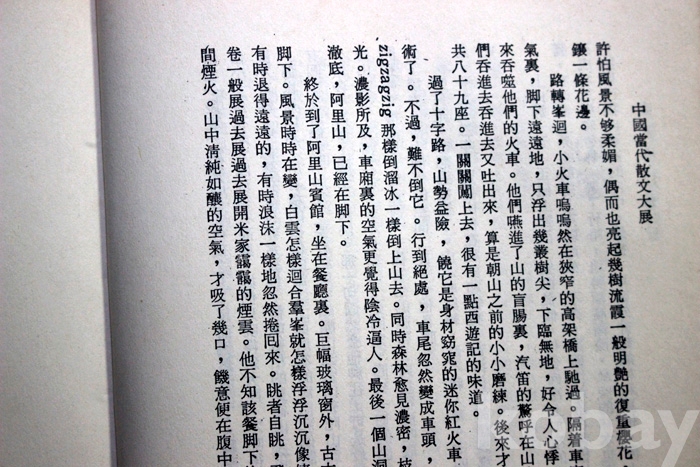 中國當代散文大展
許怕風景不够柔媚，偶而也亮起幾樹流霞一般明艷的復重櫻花
鑲一條花邊。
路轉峯迴，小火車嗚嗚然在狹窄的高架橋上馳過。隔着車
氣裏，脚下遠遠地，只浮出幾叢樹尖，下臨無地，好令人心悸
來吞噬他們的火車。他們嚥進了山的盲腸裏，汽笛的驚呼在山
們吞進去吞進去又吐出來，算是朝山之前的小小磨練。後來才
共八十九座。一關關闖上去，很有一點西遊記的味道。
過了十字路，山勢益險，饒它是身材窈窕的迷你紅火車
術了。不過，難不倒它。行到絕處，車尾忽然變成車頭，
zigzagzig 那樣倒溜冰一樣倒上山去。同時森林愈見濃密，枝
光。濃影所及，車廂裏的空氣更覺得陰冷逼人。最後一個山洞
徹底，阿里山，已經在脚下。
終於到了阿里山賓館，坐在餐廳裏。巨幅玻璃窗外，古
脚下。風景時時在變，白雲怎樣迴合羣峯就怎樣浮浮沉沉像
有時退得遠遠的，有時浪沫一樣地忽然捲回來。眺者自眺，
卷一般展過去展過去展開米家靄靄的煙雲。他不知該餐脚下的
間煙火。山中清純如釀的空氣，才吸了幾口，饑意便在腹中
robay